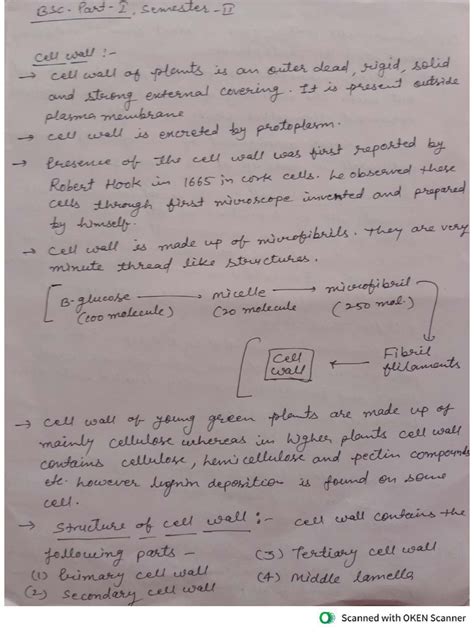 BSC. Part-I, Semester-II
Cell wall :-
→ Cell wall of plants is an outer dead, rigid, solid
and strong external covering. It is present outside
plasma membrane
→ Cell wall is encreted by protoplasm.
→ Presence of the cell wall was first reported by
Robert Hook in 1665 in cork cells. he observed these
cells through first microscope invented and prepared
by himself.
→ Cell wall is made up of microfibrils. They are very
minute thread like structures.
B-glucose → micelle → microfibril
(100 molecule) (20 molecule) (250 mol.)
Cell wall ← Fibril filaments
→ Cell wall of young green plants are made up of
mainly cellulose whereas in higher plants cell wall
contains cellulose, hemicellulose and pectin compounds
etc. however lignin deposition is found on some
cell.
→ Structure of cell wall :- cell wall contains the
following parts -
(1) Primary cell wall (3) Tertiary cell wall
(2) Secondary cell wall (4) Middle lamella
Scanned with OKEN Scanner